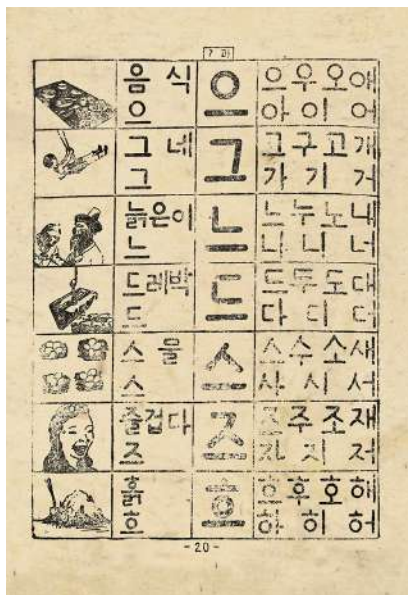 7 과
음 식
으
으
으 우 오 애
아 이 어
그 네
그
그
그 구 고 개
가 기 거
늙은이
느
느
느 누 노 내
나 니 너
드레박
드
드
드 두 도 대
다 디 더
스 물
스
스
스 수 소 새
사 시 서
즐겁다
즈
즈
즈 주 조 재
자 지 저
흙
흐
흐
흐 후 호 해
하 히 허
- 20 -